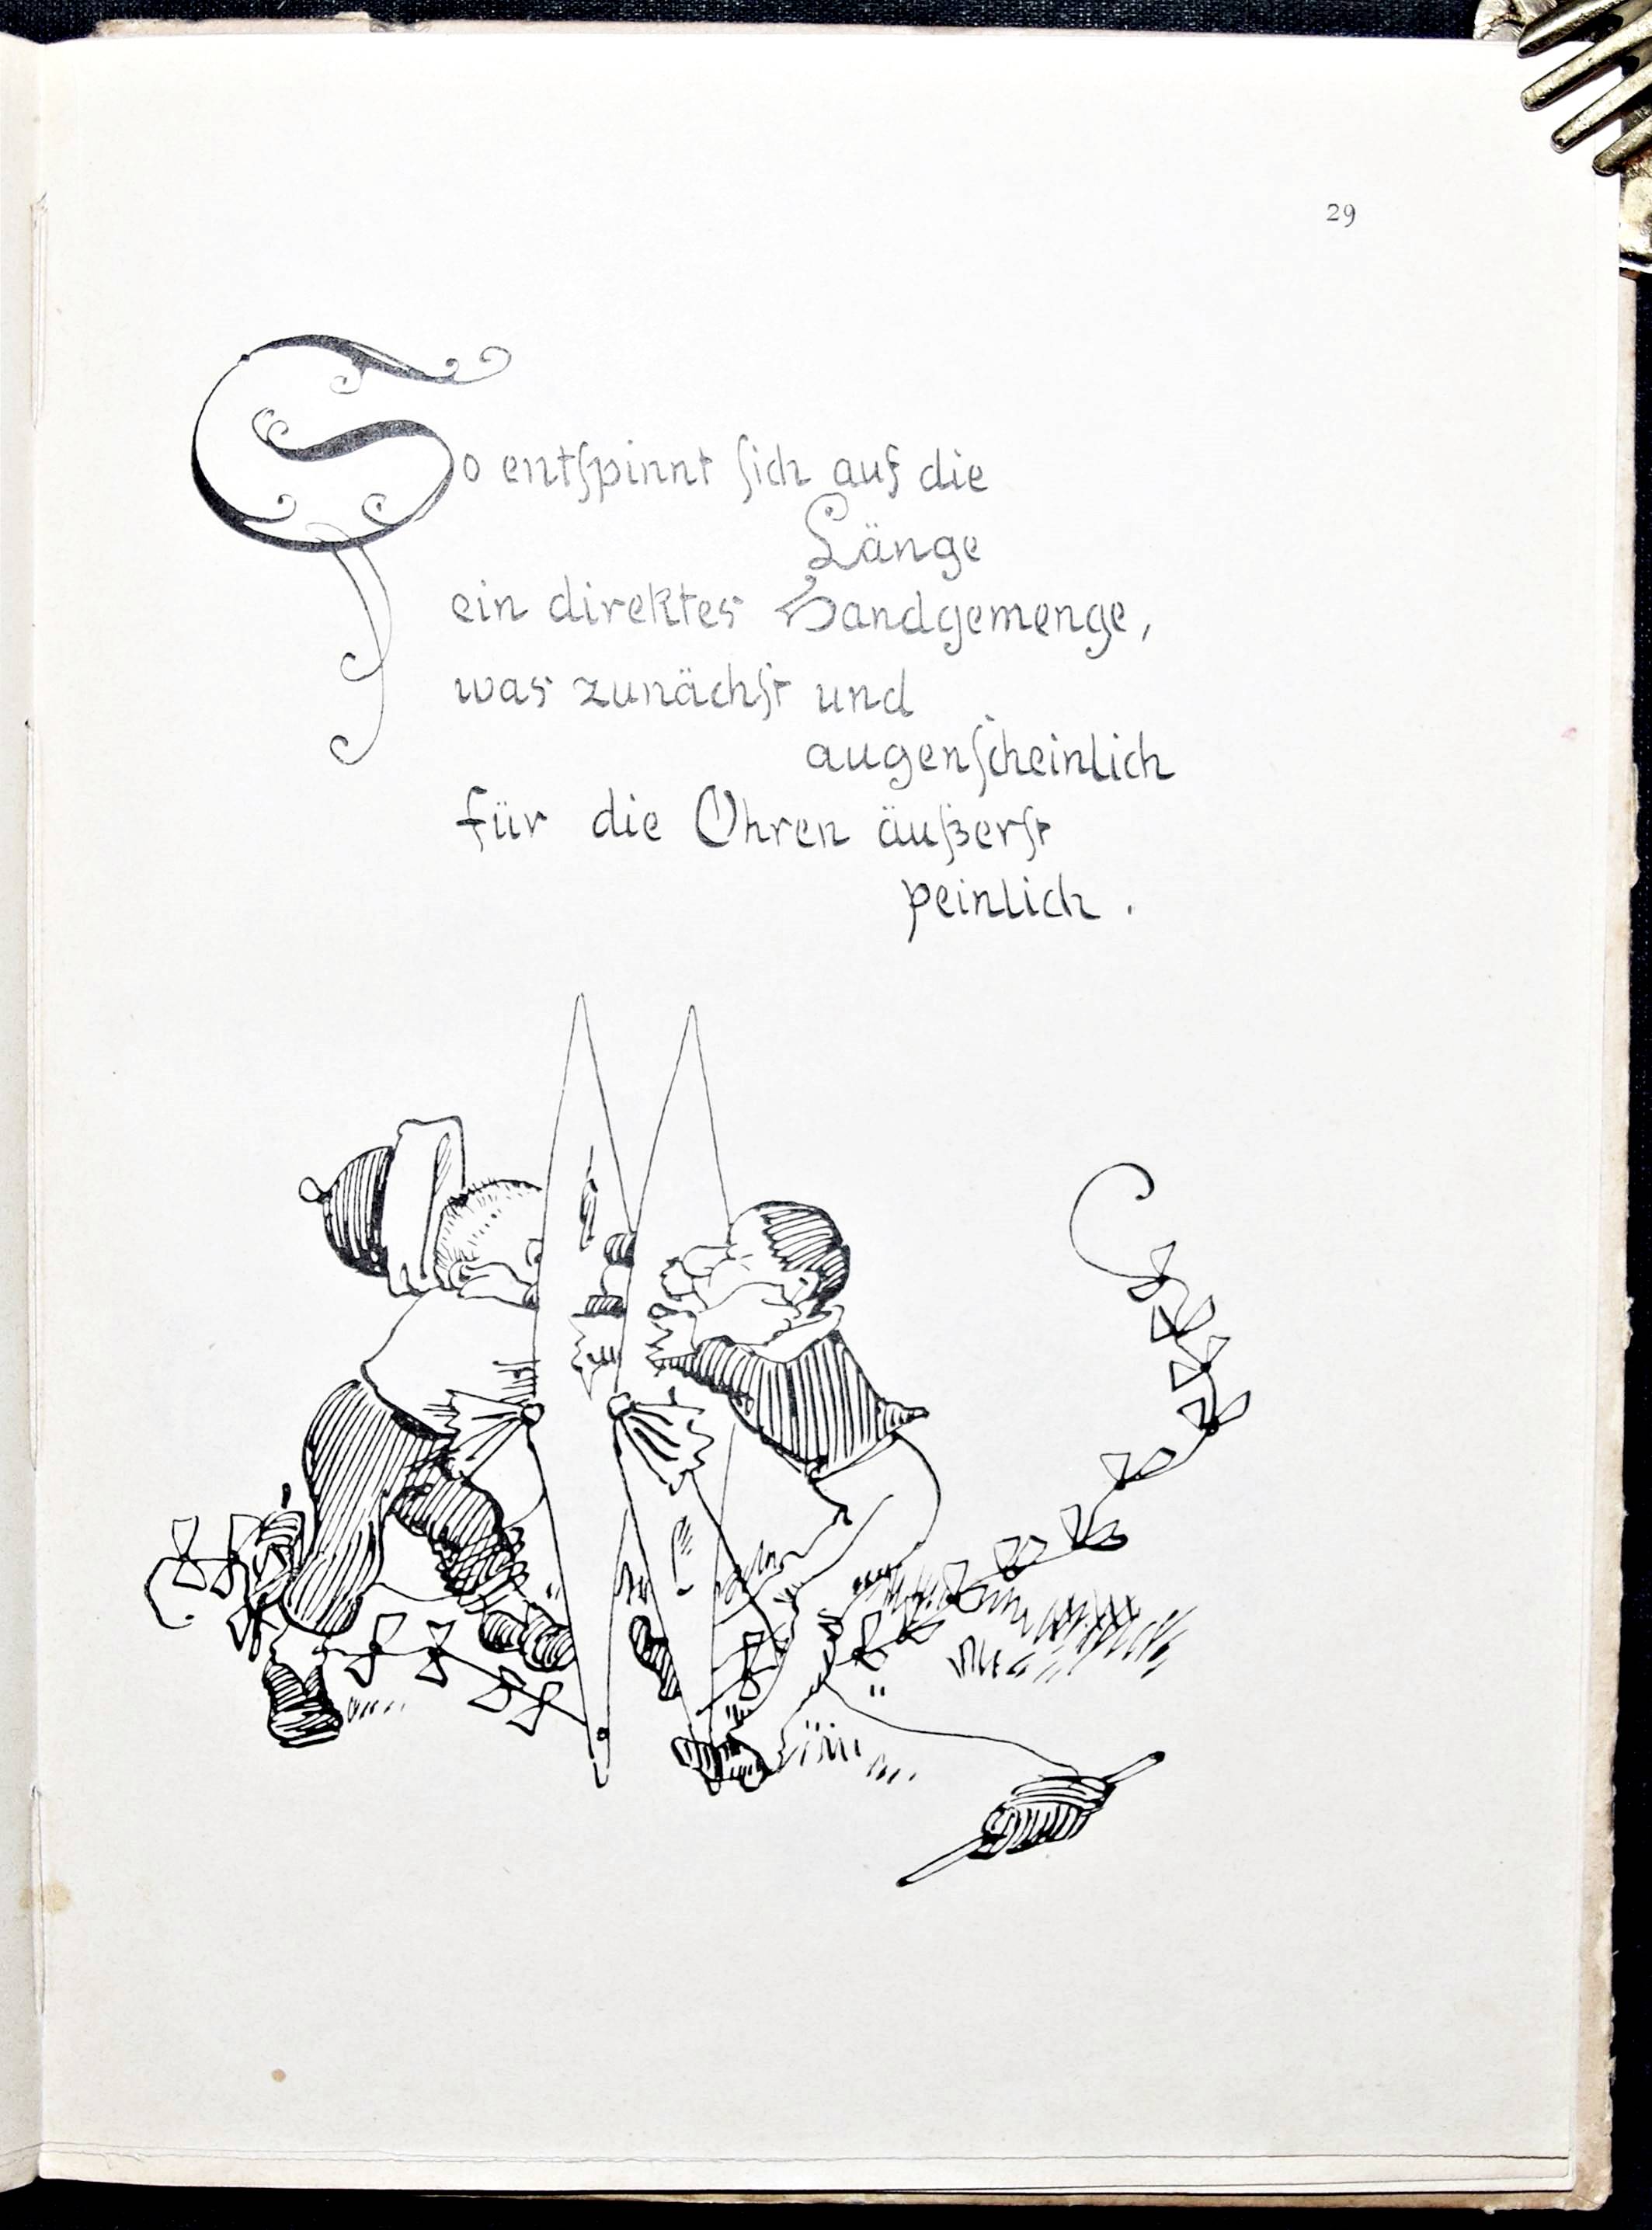 29
So entspinnt sich auf die
Länge
ein direktes Handgemenge,
was zunächst und
augenscheinlich
für die Ohren äußerst
peinlich.